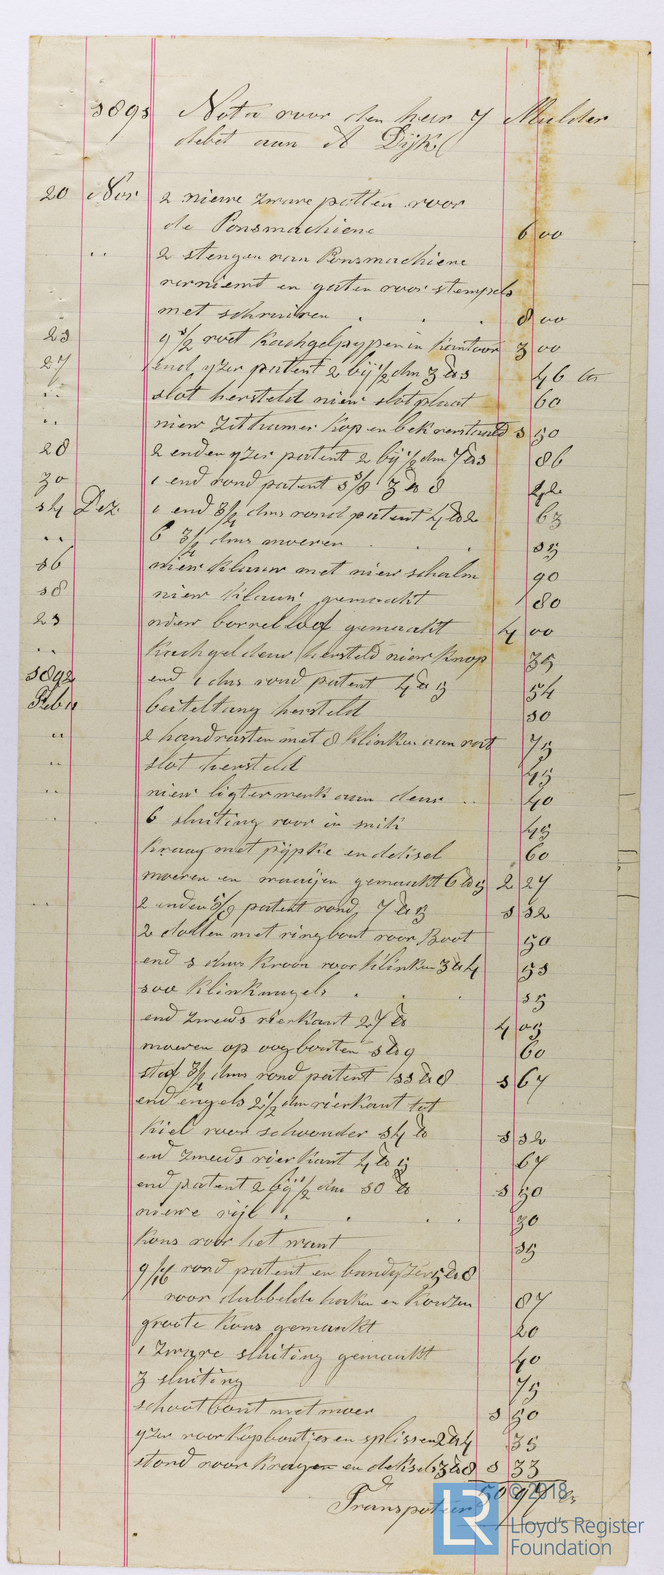 1891 Nota voor den heer J Mulder
debet aan A Dijk
20 Nov 2 nieuwe zware potten voor
de Ponsmachiene 6 00
" 2 stengen van Ponsmachiene
vernieuwd en gaten voor stempels
met schroeven 8 00
23 9 1/2 voet Kachgelpypen in Kantoor 3 00
27 end yzer patent 2 bij 1/2 dm 46
" slot hersteld nieuw slotplaat 60
" niew zethamer kop en bek verstaald 1 50
28 2 enden yzer patent 2 bij 1/2 dm 86
30 1 end rond patent
14 Dez. 1 end 3/4 dms rond patent 63
" 6 3/4 dms moeren 15
16 niew klauw met niew schalm 90
18 niew klauw gemaakt 80
23 nieuw gemaakt 4 00
" Kachgeldeur hersteld nieuw knop 35
1892 end 1 dms rond patent 54
Feb 11 beiteltang hersteld 10
" 2 handvasten met 8 klinken aan vast 75
" slot hersteld 45
" niew ligterwerk aan deur 40
" 6 sluiting voor in 45
kraag met pijpke en deksel 60
moeren en gemaakt 2 27
" 2 enden 5/8 patent rond 1 12
2 dollen met ringbout voor Boot 50
end 1 dms kroon voor klinken 53
100 klinknagels 15
end zweeds vierkant 27 4 05
moeren op oogbouten 60
staf 3/4 dms rond patent 1 67
end engels 2 1/2 dm vierkant tot
kiel voor schoonder 14 1 12
end zweeds vierkant 67
end patent 2 bij 1/2 dm 10 1 50
nieuwe vijl 30
Kous voor het want 15
9/16 rond patent en bandyzer
voor dubbelde haken en Kouzen 87
groote Kous gemaakt 20
1 zware sluiting gemaakt 40
3 sluiting 75
schootbout met moer 1 50
yzer voor Kopboutjes en splissen 35
stond voor kragen en deksels 1 33
Transporteer 50 97
© 2018
LR Lloyd's Register
Foundation